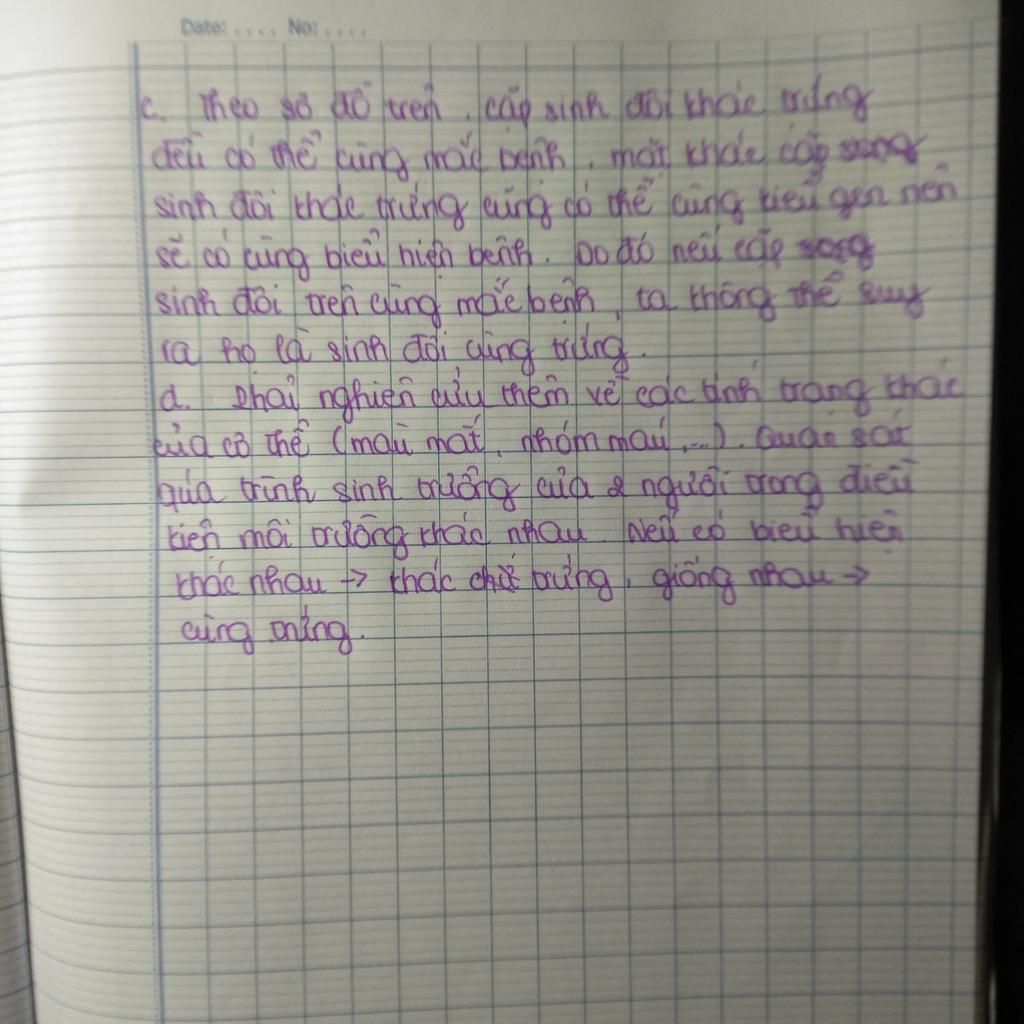 Date: .... No: ....
c. Theo sơ đồ trên, cặp sinh đôi khác trứng
đều có thể cùng mắc bệnh, mặt khác cặp song
sinh đôi khác trứng cũng có thể cùng kiểu gen nên
sẽ có cùng biểu hiện bệnh. Do đó nếu cặp song
sinh đôi trên cùng mắc bệnh, ta không thể suy
ra họ là sinh đôi cùng trứng.
d. Phải nghiên cứu thêm về các tính trạng khác
của cơ thể (màu mắt, nhóm máu,...). Quan sát
quá trình sinh trưởng của 2 người trong điều
kiện môi trường khác nhau. Nếu có biểu hiện
khác nhau -> khác trứng, giống nhau ->
cùng trứng.